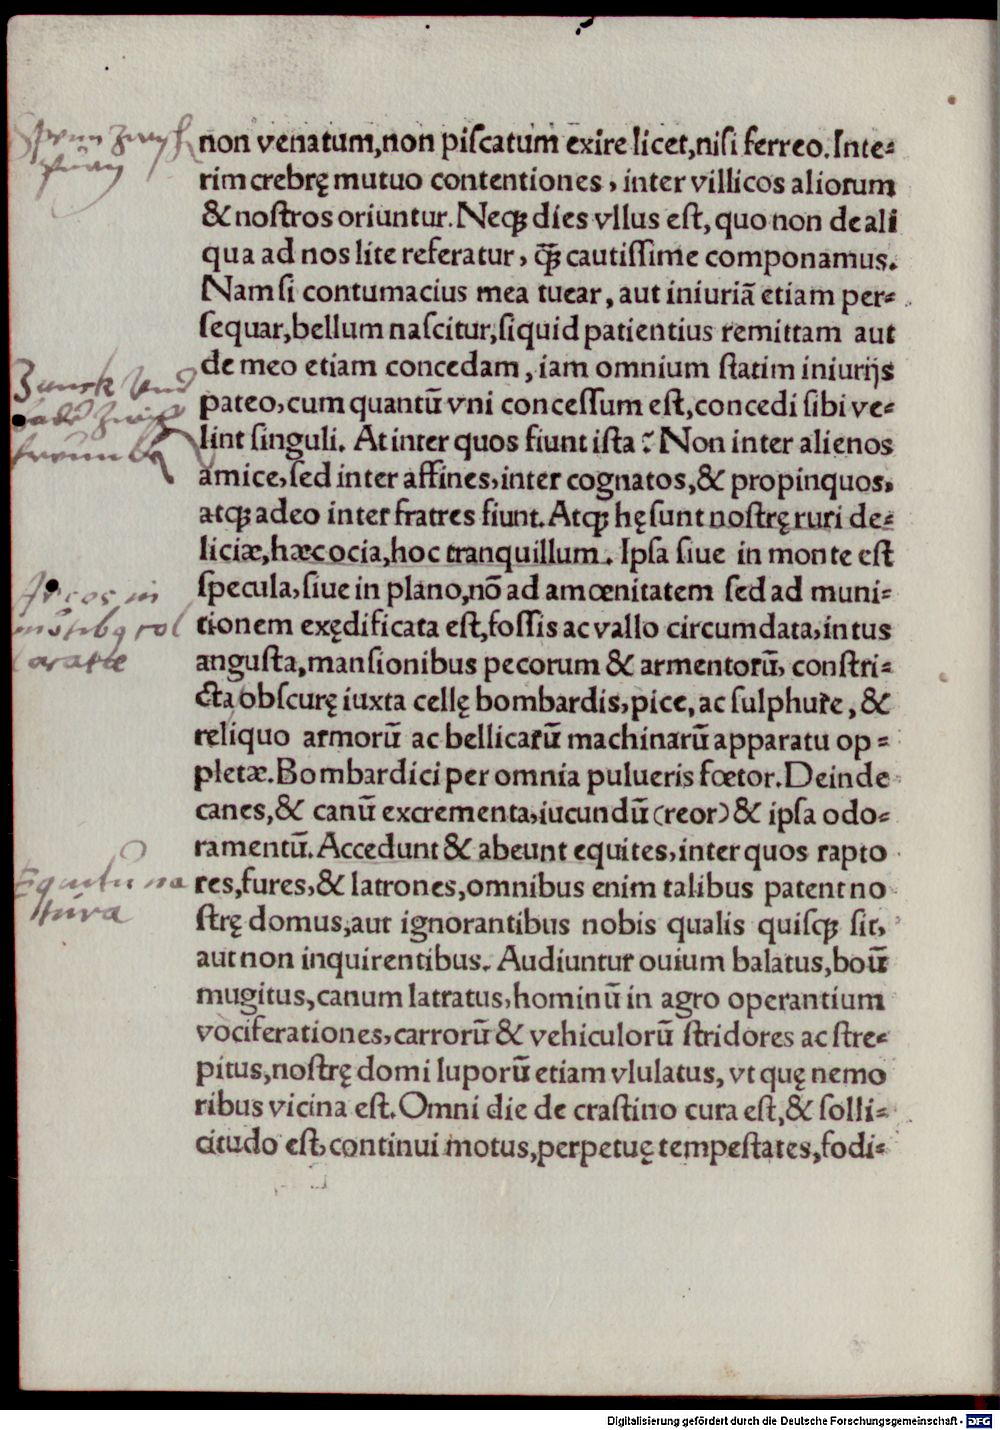 non venatum,non piſcatum exire licet,niſi ferreo.Inte⸗
rim crebrę mutuo contentiones, inter villicos aliorum
& noſtros oriuntur. Neqꝫ dies vllus eſt, quo non de ali
qua ad nos lite referatur, q̃ꝫ cautiſſime componamus.
Nam ſi contumacius mea tuear, aut iniuriã etiam per⸗
ſequar,bellum naſcitur,ſiquid patientius remittam aut
de meo etiam concedam, iam omnium ſtatim iniurijs
pateo, cum quantũ vni conceſſum eſt,concedi ſibi ve⸗
lint ſinguli. At inter quos fiunt iſta? Non inter alienos
amice, ſed inter affines, inter cognatos,& propinquos,
atqꝫ adeo inter fratres fiunt. Atqꝫ hę ſunt noſtrę ruri de⸗
liciæ,hæc ocia,hoc tranquillum. Ipſa ſiue in monte eſt
ſpecula, ſiue in plano,nõ ad amœnitatem ſed ad muni⸗
tionem exędificata eſt,foſſis ac vallo circumdata, intus
anguſta,manſionibus pecorum & armentorũ, conſtri⸗
cta obſcurę iuxta cellę bombardis, pice, ac ſulphure, &
reliquo armorũ ac bellicarũ machinarũ apparatu op⸗
pletæ. Bombardici per omnia pulueris fœtor. Deinde
canes,& canũ excrementa, iucundũ (reor) & ipſa odo⸗
ramentũ. Accedunt & abeunt equites, inter quos rapto
res,fures, & latrones,omnibus enim talibus patent no
ſtrę domus,aut ignorantibus nobis qualis quiſqꝫ ſit,
aut non inquirentibus. Audiuntur ouium balatus,boũ
mugitus,canum latratus, hominũ in agro operantium
vociferationes, carrorũ & vehiculorũ ſtridores ac ſtre⸗
pitus,noſtrę domi luporũ etiam vlulatus, vt quę nemo
ribus vicina eſt. Omni die de craſtino cura eſt,& ſolli⸗
citudo eſt, continui motus,perpetuę tempeſtates,fodi⸗
Equitũ na
tura
Digitalisierung gefördert durch die Deutsche Forschungsgemeinschaft - DFG